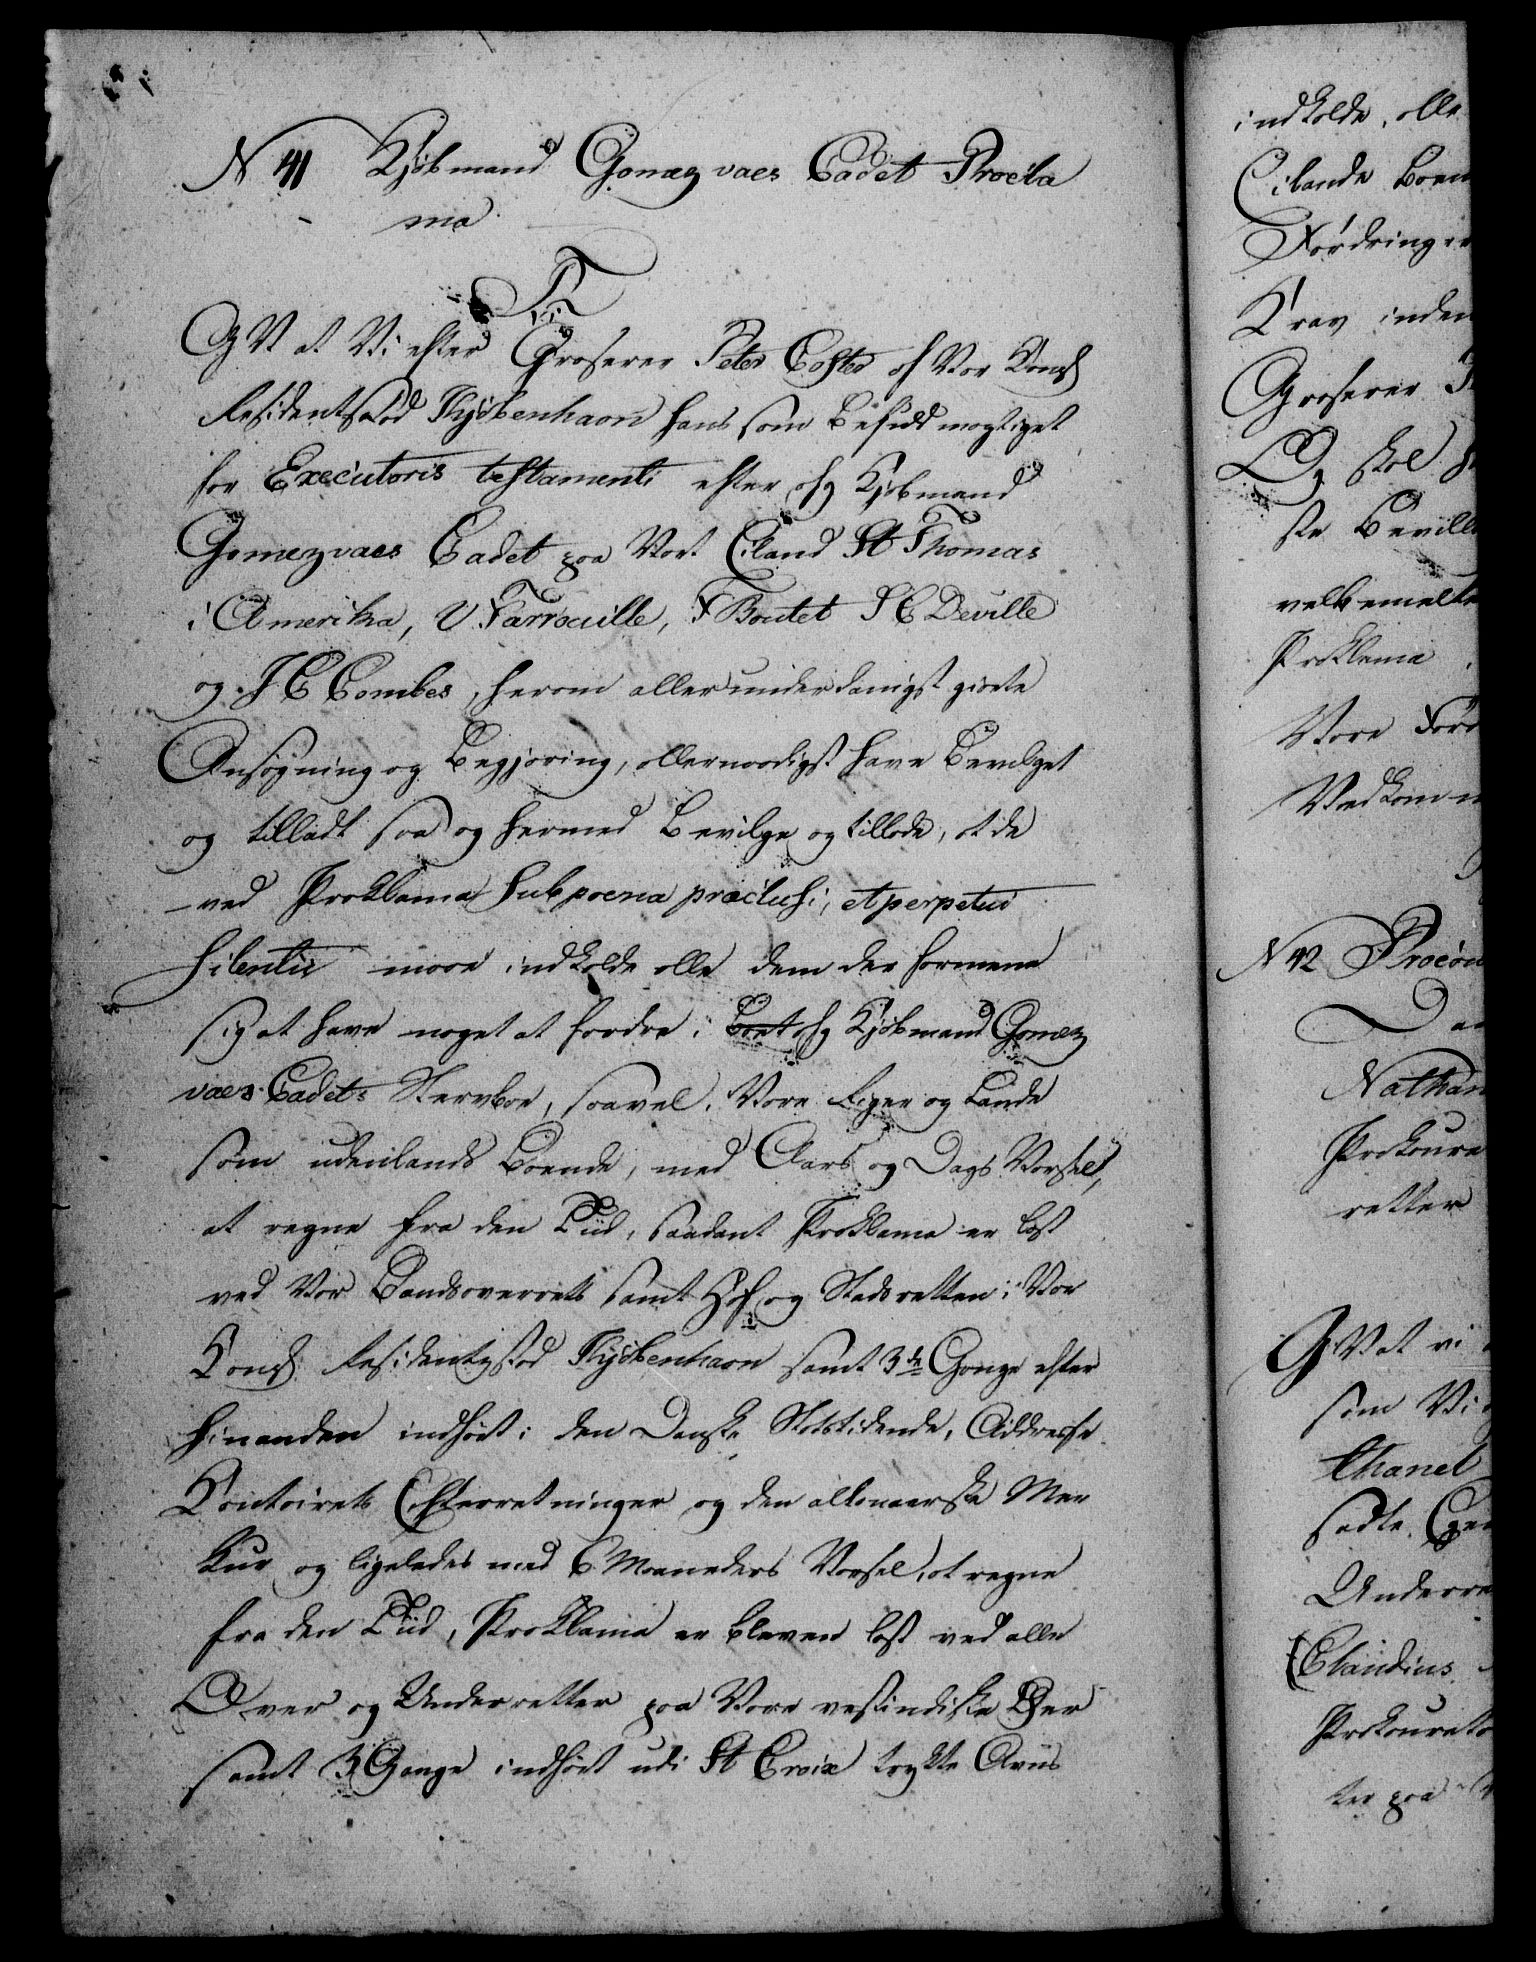 N 41 Kjøbmand Gomezvaes Cadet Procla
ma
GV at Vi efter Grosserer Peter Coster af Vor Kongl
Residentsstad Kjøbenhavn hans som Befuldmægtiget
for Executoris testamenti efter afg Kjøbmand
Gomezvaes Cadet paa Vort Eiland St Thomas
i Amerika, V Farrouille, F Boutet J C Deville
og J C Combes, herom allerunderdanigst giorte
Ansøgning og Begjæring, allernaadigst have Bevilget
og tilladt saa og hermed Bevilge og tillade, at de
ved Proklama sub poena præclusi, et perpetui
silentii maae indkalde alle dem der formene
sig at have noget at fordre i Boet afg Kjøbmand Gomez
vaes Cadets Stervboe, saavel i Vore Riger og Lande
som udenlands Boende, med Aars og Dags Varsel,
at regne fra den Tiid, saadant Proklama er læst
ved Vor Landsoverrets samt Hof og Stadsretten i Vor
Kongl Residentzstad Kjøbenhavn samt 3de Gange efter
hinanden indført i den Danske Statstidende, Addresse
Kontoirets Efterretninger og den altonaerske Mer
kur og ligeledes med 6 Maaneders Varsel, at regne
fra den Tiid, Proklama er bleven læst ved alle
Over og Underretter paa Vore vestindiske Øer
samt 3 Gange indført udi St Croix trykte Aviis
indkalde, alle
Eilande Boen
Fordringer
Krav inden
Grosserer
Og skal
ste Bevill
velbemelte
Proklama
Vore Forr
Vedkomm
N 42 Procur
Nathan
Prokura
retter
GV at vi
som Vi
thanel
satte
Underre
Claudius
Prokurato
ter paa